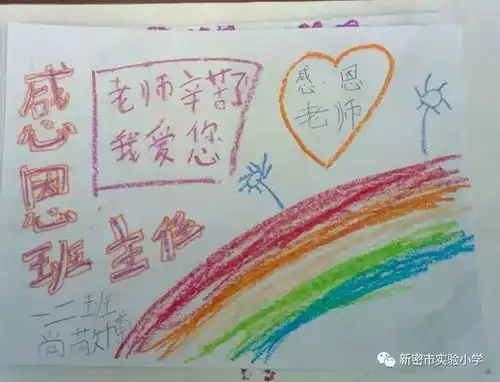 感恩
班主任
老师辛苦了
我爱您
感恩
老师
一二班
尚敬博
新密市实验小学